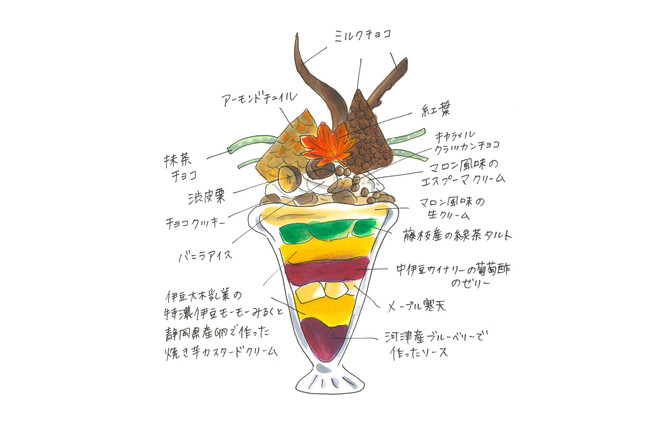 ミルクチョコ
アーモンドチュイル
紅葉
キャラメル
クランカンチョコ
抹茶
チョコ
マロン風味の
エスプーマクリーム
渋皮栗
マロン風味の
生クリーム
チョコクッキー
藤枝産の緑茶タルト
バニラアイス
中伊豆ワイナリーの葡萄酢
のゼリー
伊豆大木乳業の
特濃伊豆モーモーみるくと
静岡県産卵で作った
焼き芋カスタードクリーム
メープル寒天
河津産ブルーベリーで
作ったソース